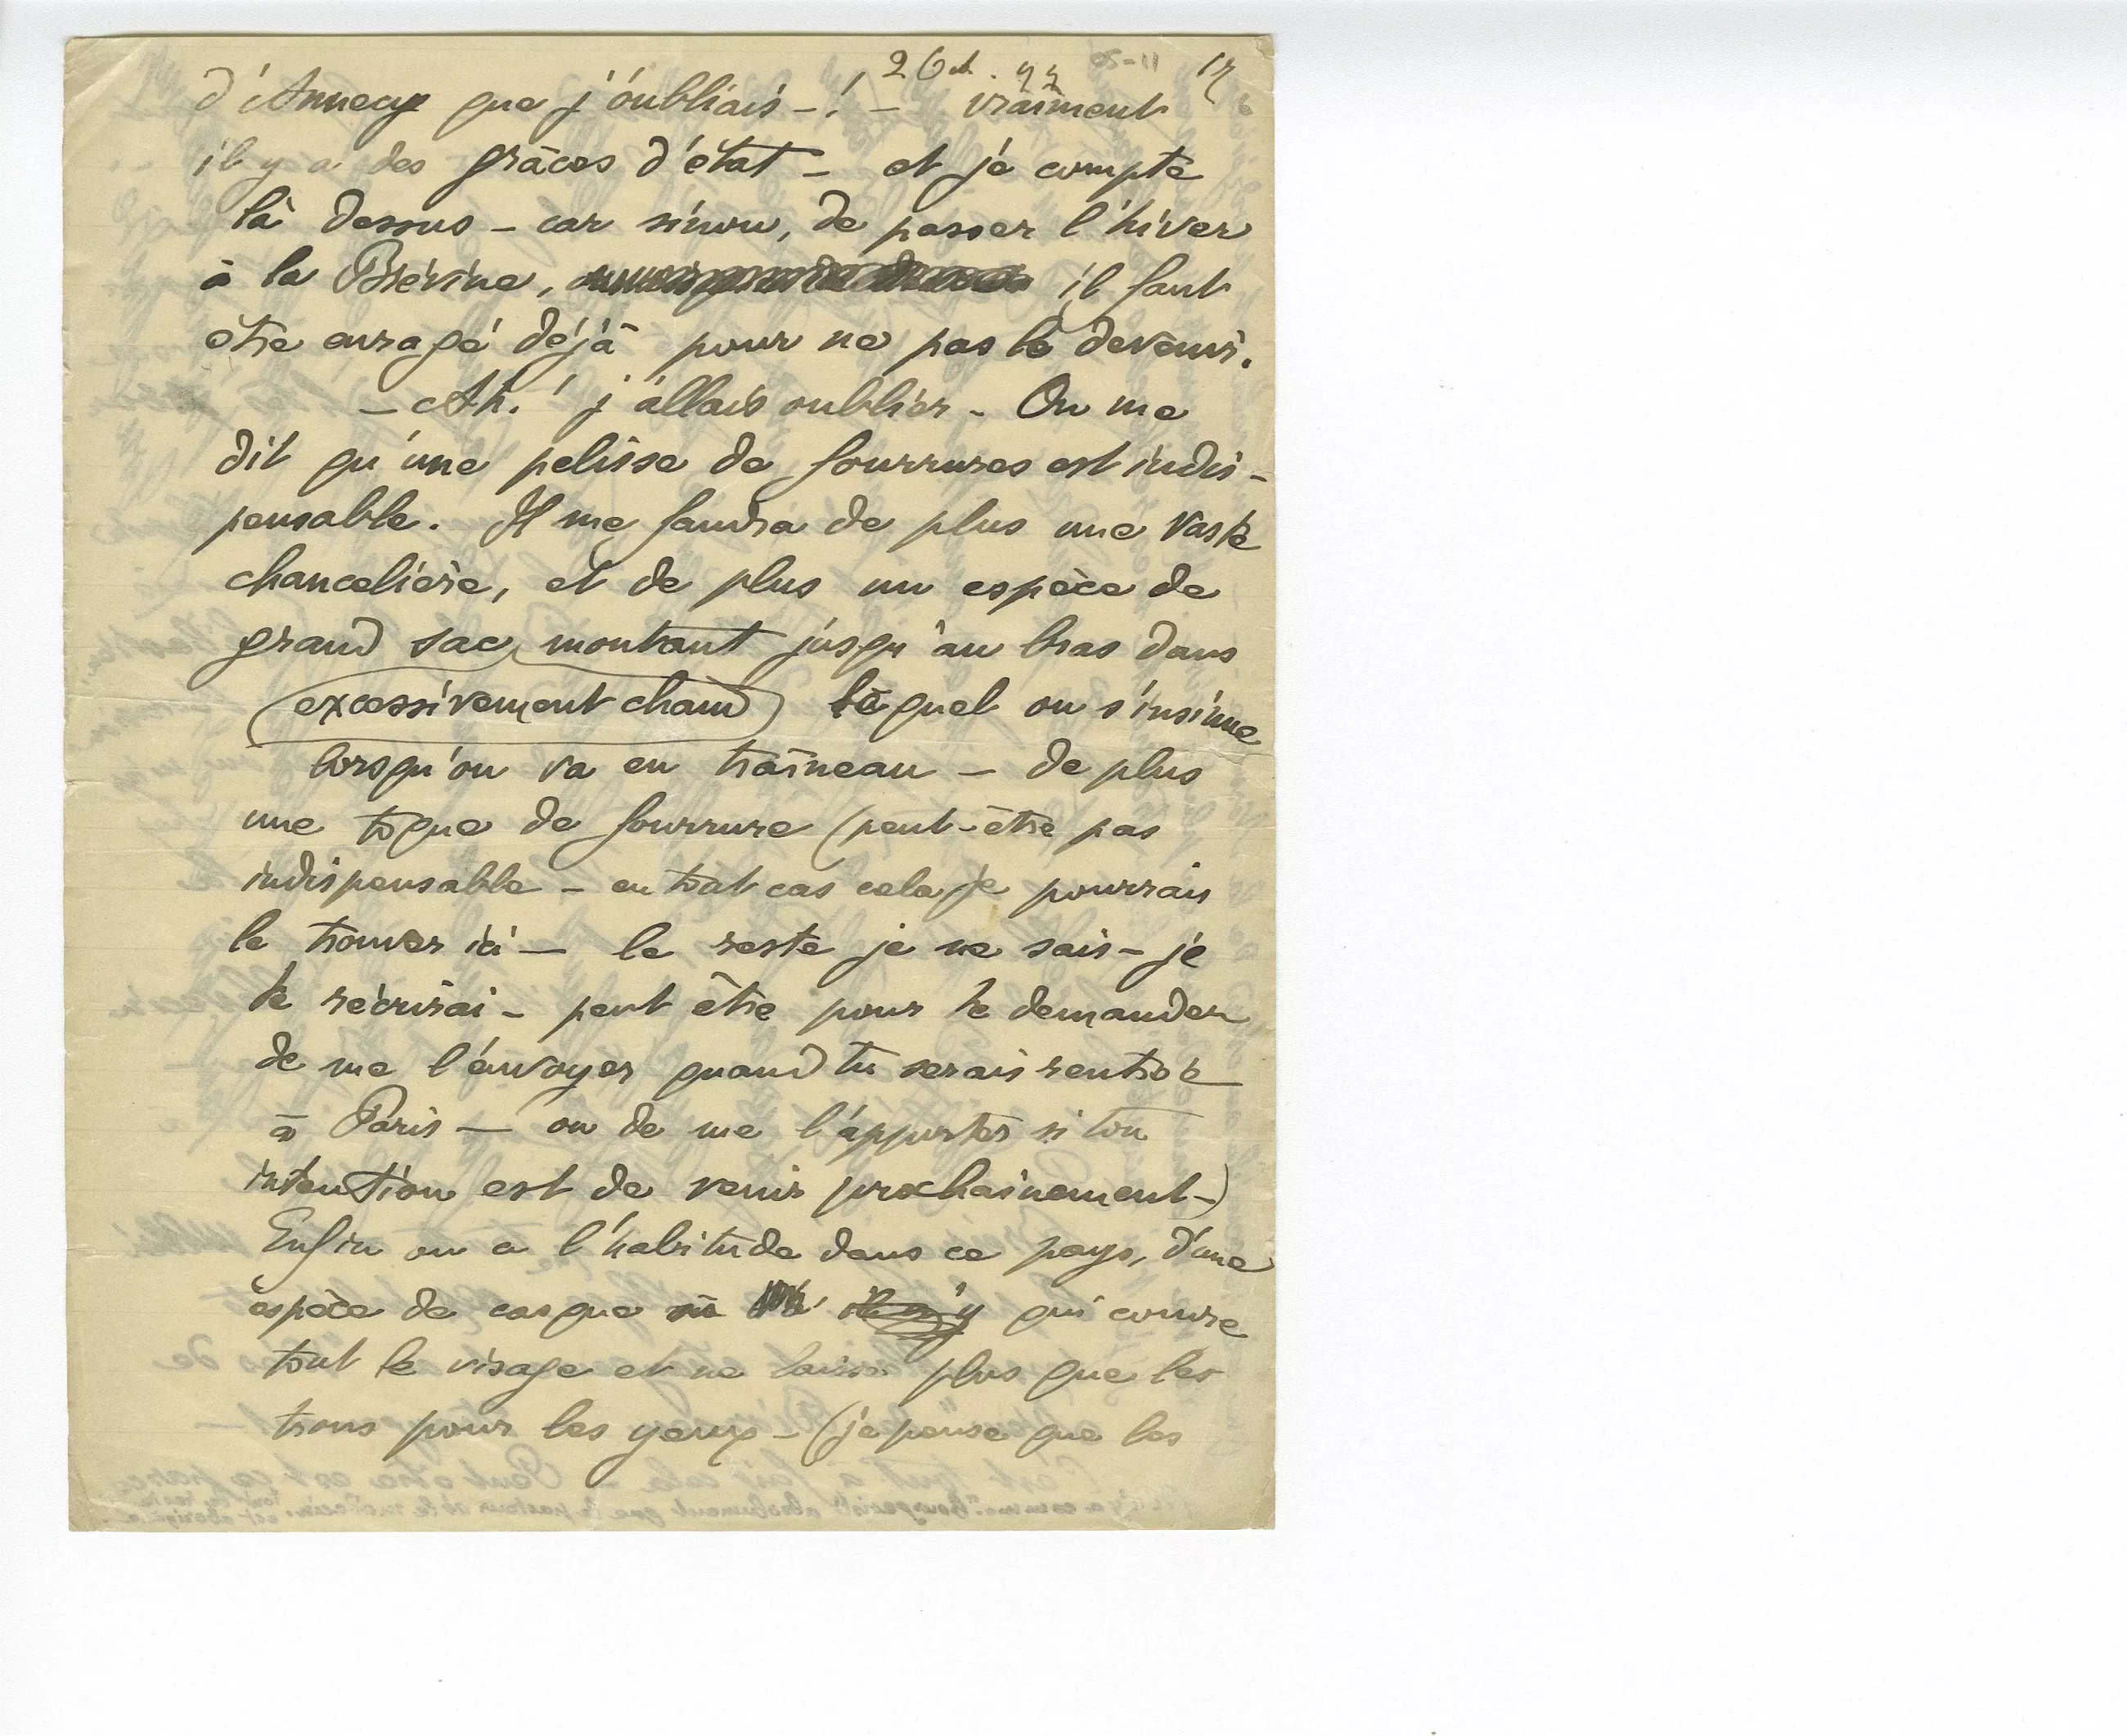 2 Oct. 97 17
d'Annecy que j'oubliais – ! – vraiment
il y a des grâces d'état – et je compte
là dessus – car sinon, de passer l'hiver
à la Brévine, il faut
être enragé déjà pour ne pas le devenir.
– Ah ! j'allais oublier – On me
dit qu'une pelisse de fourrures est indis-
pensable. Il me faudra de plus une vaste
chancelière, et de plus un espèce de
grand sac montant jusqu'au bras dans
(excessivement chaud) lequel on s'insinue
lorsqu'on va en traîneau – de plus
une toque de fourrure (peut-être pas
indispensable – en tout cas cela je pourrais
le trouver ici – le reste je ne sais – je
te récrirai – peut être pour te demander
de me l'envoyer quand tu serais rentrée
à Paris – ou de me l'apporter si ton
intention est de venir prochainement –)
Enfin on a l'habitude dans ce pays, d'une
espèce de casque qui couvre
tout le visage et ne laisse plus que les
trous pour les yeux – (je pense que les